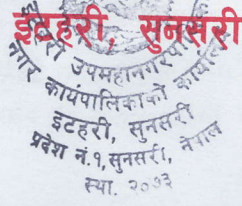 इटहरी, सुनसरी
इटहरी उपमहानगरपालिका
नगर कार्यपालिकाको कार्यालय
इटहरी, सुनसरी
प्रदेश नं.१, सुनसरी, नेपाल
स्था. २०७३